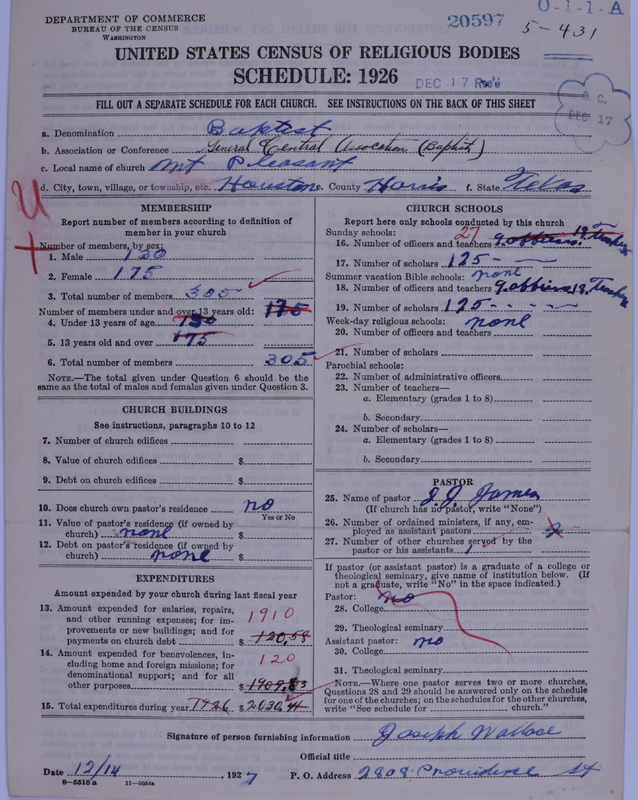 DEPARTMENT OF COMMERCE
BUREAU OF THE CENSUS
WASHINGTON
20597
O-1-1-A
5-431
UNITED STATES CENSUS OF RELIGIOUS BODIES
SCHEDULE: 1926
DEC 17 Rec'd
DEC 17
FILL OUT A SEPARATE SCHEDULE FOR EACH CHURCH. SEE INSTRUCTIONS ON THE BACK OF THIS SHEET
a. Denomination Baptist
b. Association or Conference General Central Association (Baptist)
c. Local name of church Mt Pleasant
d. City, town, village, or township, etc. Houston e. County Harris f. State Texas
MEMBERSHIP
Report number of members according to definition of
member in your church
Number of members, by sex:
1. Male 130
2. Female 175
3. Total number of members 305
Number of members under and over 13 years old: 175
4. Under 13 years of age 130
5. 13 years old and over 175
6. Total number of members 305
NOTE.—The total given under Question 6 should be the
same as the total of males and females given under Question 3.
CHURCH BUILDINGS
See instructions, paragraphs 10 to 12
7. Number of church edifices
8. Value of church edifices $
9. Debt on church edifices $
10. Does church own pastor's residence no
Yes or No
11. Value of pastor's residence (if owned by
church) none $
12. Debt on pastor's residence (if owned by
church) none $
EXPENDITURES
Amount expended by your church during last fiscal year
13. Amount expended for salaries, repairs,
and other running expenses; for im-
provements or new buildings; and for
payments on church debt 1910 $
14. Amount expended for benevolences, in-
cluding home and foreign missions; for
denominational support; and for all
other purposes 120 $
15. Total expenditures during year 1926 $ 2030
CHURCH SCHOOLS
Report here only schools conducted by this church
Sunday schools:
16. Number of officers and teachers 27 9 officers. 18 Teachers
17. Number of scholars 125
Summer vacation Bible schools: none
18. Number of officers and teachers 9 officers 18 Teachers
19. Number of scholars 125
Week-day religious schools: none
20. Number of officers and teachers
21. Number of scholars
Parochial schools:
22. Number of administrative officers
23. Number of teachers—
a. Elementary (grades 1 to 8)
b. Secondary
24. Number of scholars—
a. Elementary (grades 1 to 8)
b. Secondary
PASTOR
25. Name of pastor J. J. James
(If church has no pastor, write "None")
26. Number of ordained ministers, if any, em-
ployed as assistant pastors
27. Number of other churches served by the
pastor or his assistants 1
If pastor (or assistant pastor) is a graduate of a college or
theological seminary, give name of institution below. (If
not a graduate, write "No" in the space indicated.)
Pastor: no
28. College
29. Theological seminary
Assistant pastor: no
30. College
31. Theological seminary
NOTE.—Where one pastor serves two or more churches,
Questions 28 and 29 should be answered only on the schedule
for one of the churches; on the schedules for the other churches,
write "See schedule for church."
Signature of person furnishing information Joseph Wallace
Official title
Date 12/14, 1927 P. O. Address 2808 Providence St
8—5518a 11—9084a